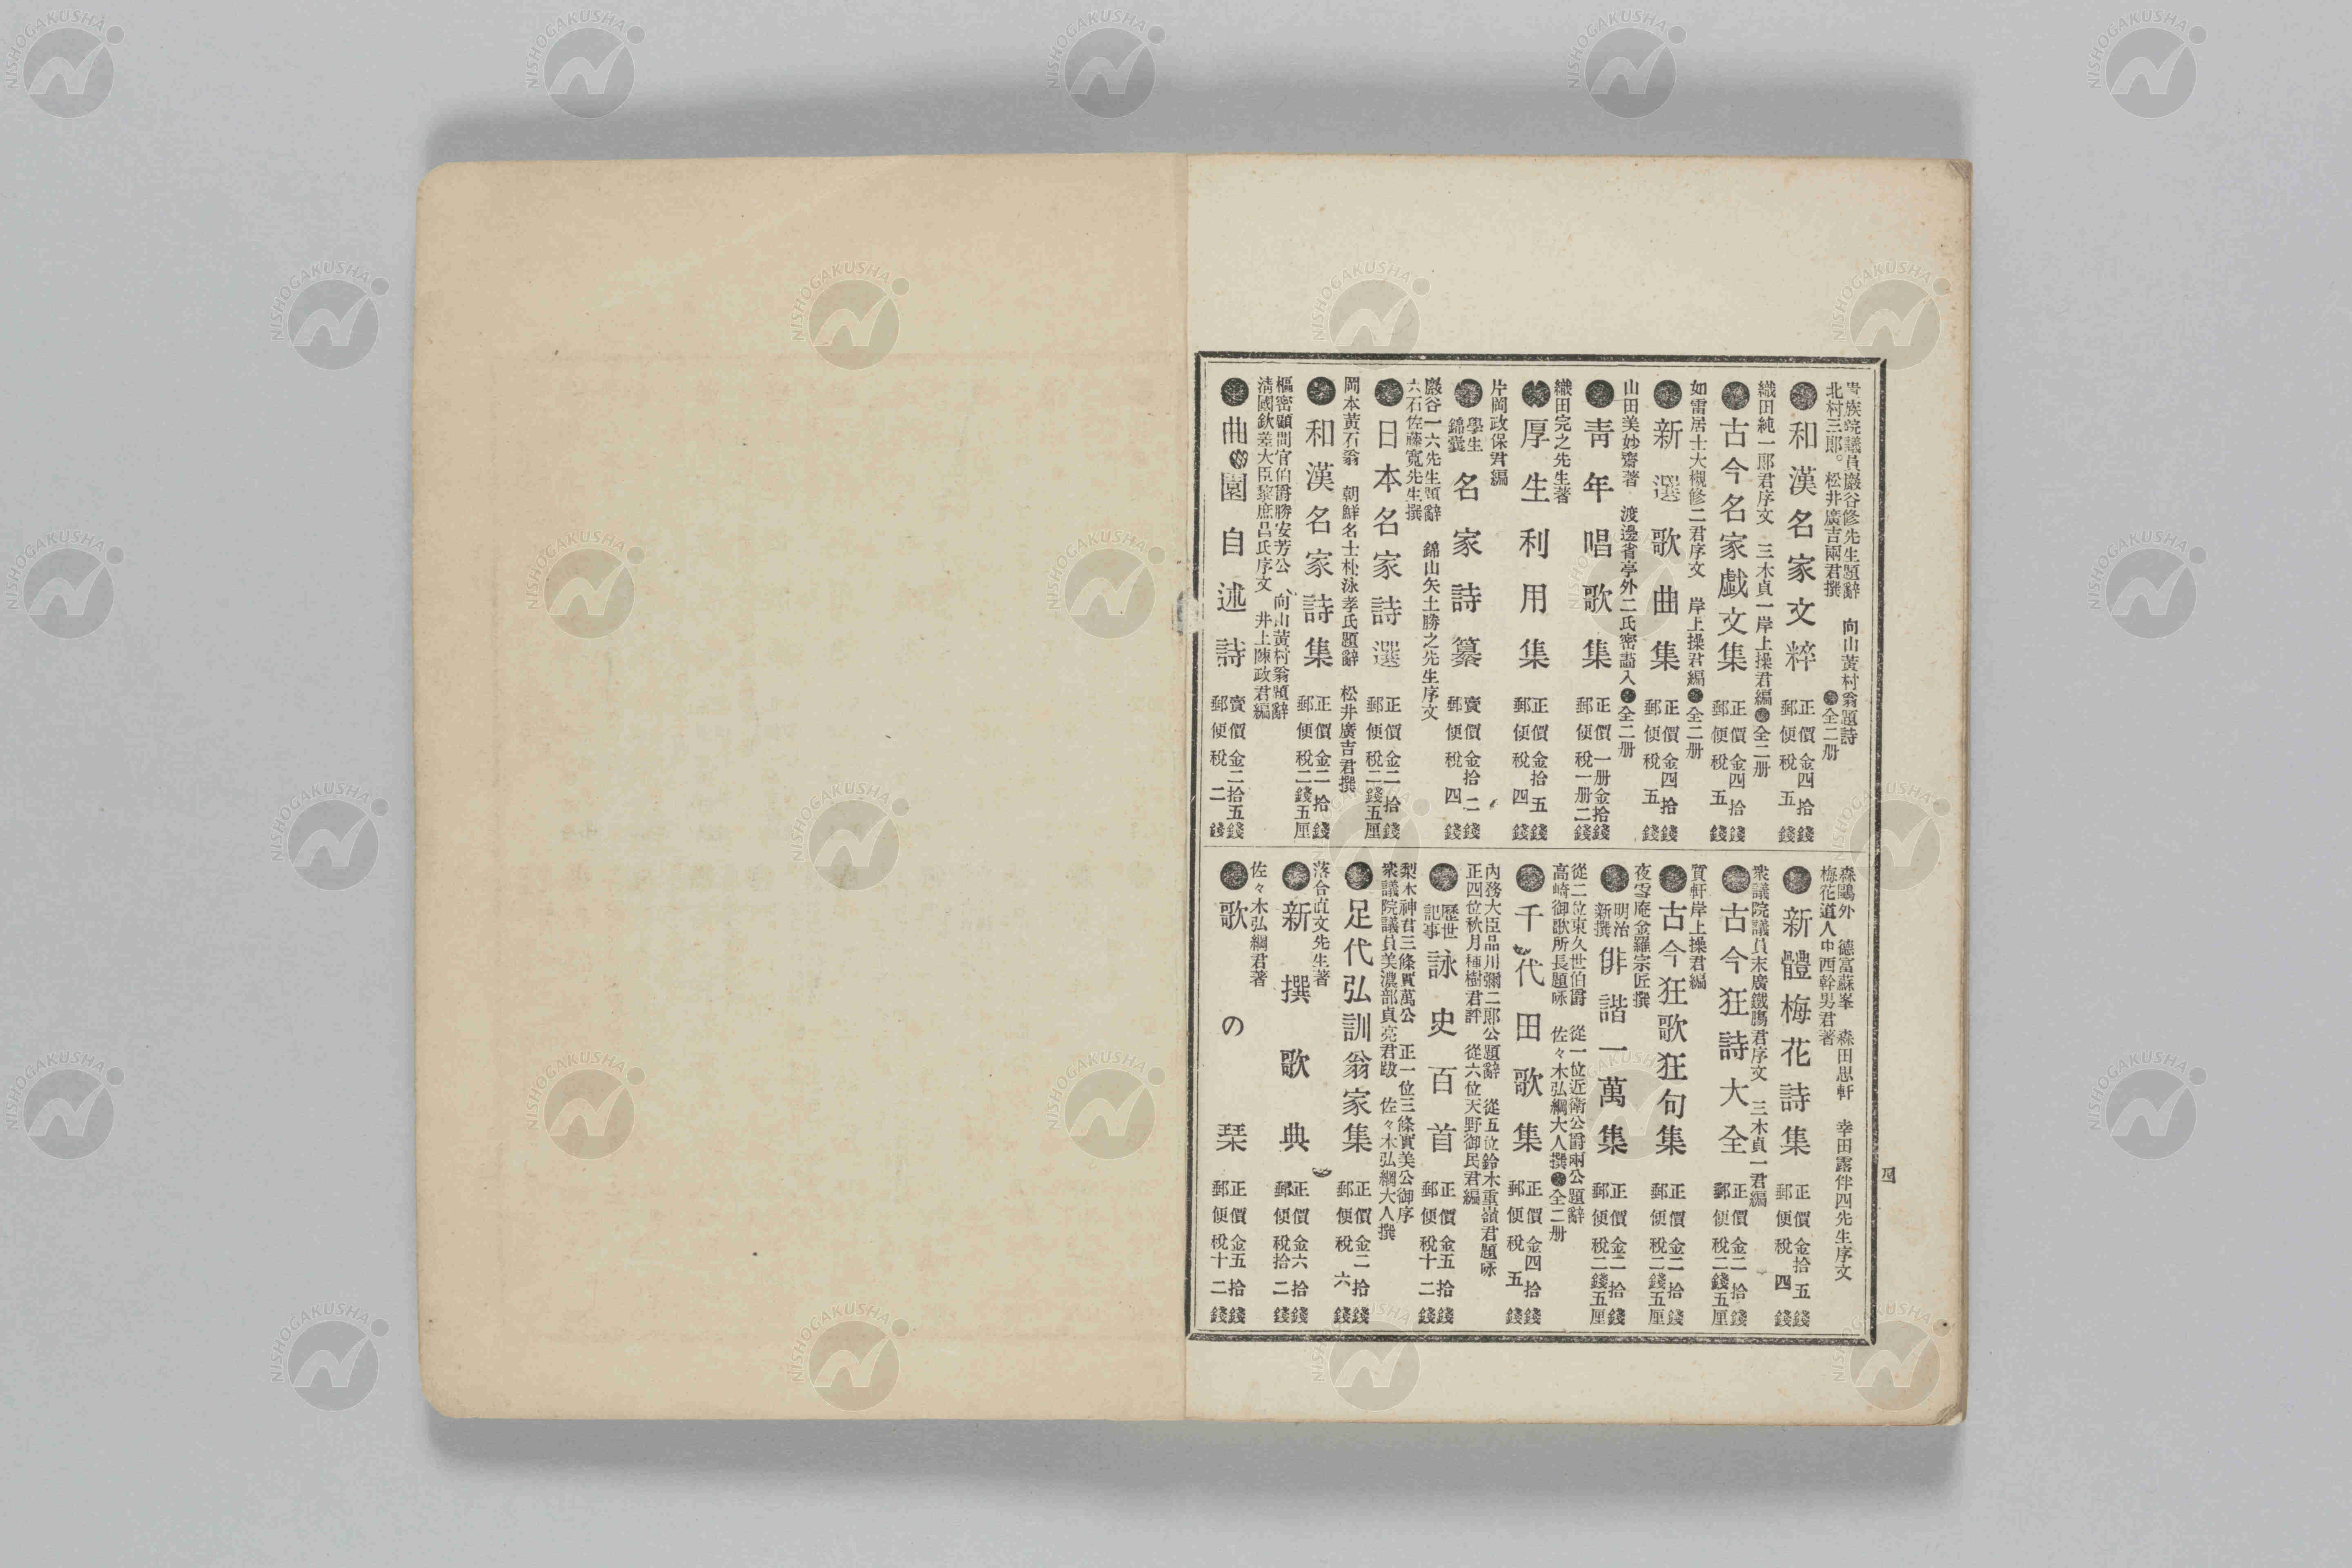 貴族院議員巖谷修先生題辭　向山黃村翁題詩
北村三郎。松井廣吉兩君撰　●全二册
●和漢名家文粹　正價金四拾錢　郵便稅五錢
織田純一郎君序文　三木貞一岸上操君編●全二册
●古今名家戯文集　正價金四拾錢　郵便稅五錢
如雷居士大槻修二君序文　岸上操君編●全二册
●新選歌曲集　正價金四拾錢　郵便稅五錢
山田美妙齋著　渡邊省亭外二氏密畫入●全二册
●靑年唱歌集　正價一册金拾錢　郵便稅一册二錢
織田完之先生著
●厚生利用集　正價金拾五錢　郵便稅四錢
片岡政保君編
●學生錦囊名家詩纂　賣價金拾二錢　郵便稅四錢
巖谷一六先生題辭　錦山矢土勝之先生序文
六石佐藤寬先生撰
●日本名家詩選　正價金二拾錢　郵便稅二錢五厘
岡本黃石翁　朝鮮名士朴泳孝氏題辭　松井廣吉君撰
●和漢名家詩集　正價金二拾錢　郵便稅二錢五厘
樞密顧問官伯爵勝安芳公　向山黃村翁題辭
淸國欽差大臣黎庶昌氏序文　井上陳政君編
●曲園自述詩　賣價金二拾五錢　郵便稅二錢
森鷗外　德富蘇峯　森田思軒　幸田露伴四先生序文
梅花道人中西幹男君著
●新體梅花詩集　正價金拾五錢　郵便稅四錢
衆議院議員末廣鐵膓君序文　三木貞一君編
●古今狂詩大全　正價金二拾錢　郵便稅二錢五厘
質軒岸上操君編
●古今狂歌狂句集　正價金二拾錢　郵便稅二錢五厘
夜雪庵金羅宗匠撰
●明治新撰俳諧一萬集　正價金二拾錢　郵便稅二錢五厘
從二位東久世伯爵　從一位近衛公爵兩公題辭
高崎御歌所長題咏　佐々木弘綱大人撰●全二册
●千代田歌集　正價金四拾錢　郵便稅五錢
內務大臣品川彌二郎公題辭　從五位鈴木重嶺君題咏
正四位秋月種樹君評　從六位天野御民君編
●歷世記事詠史百首　正價金五拾錢　郵便稅十二錢
梨木神君三條實萬公　正一位三條實美公御序
衆議院議員美濃部貞亮君跋　佐々木弘綱大人撰
●足代弘訓翁家集　正價金二拾錢　郵便稅六錢
落合直文先生著
●新撰歌典　正價金六拾錢　郵便稅拾二錢
佐々木弘綱君著
●歌の栞　正價金五拾錢　郵便稅十二錢
四
NISHOGAKUSHA